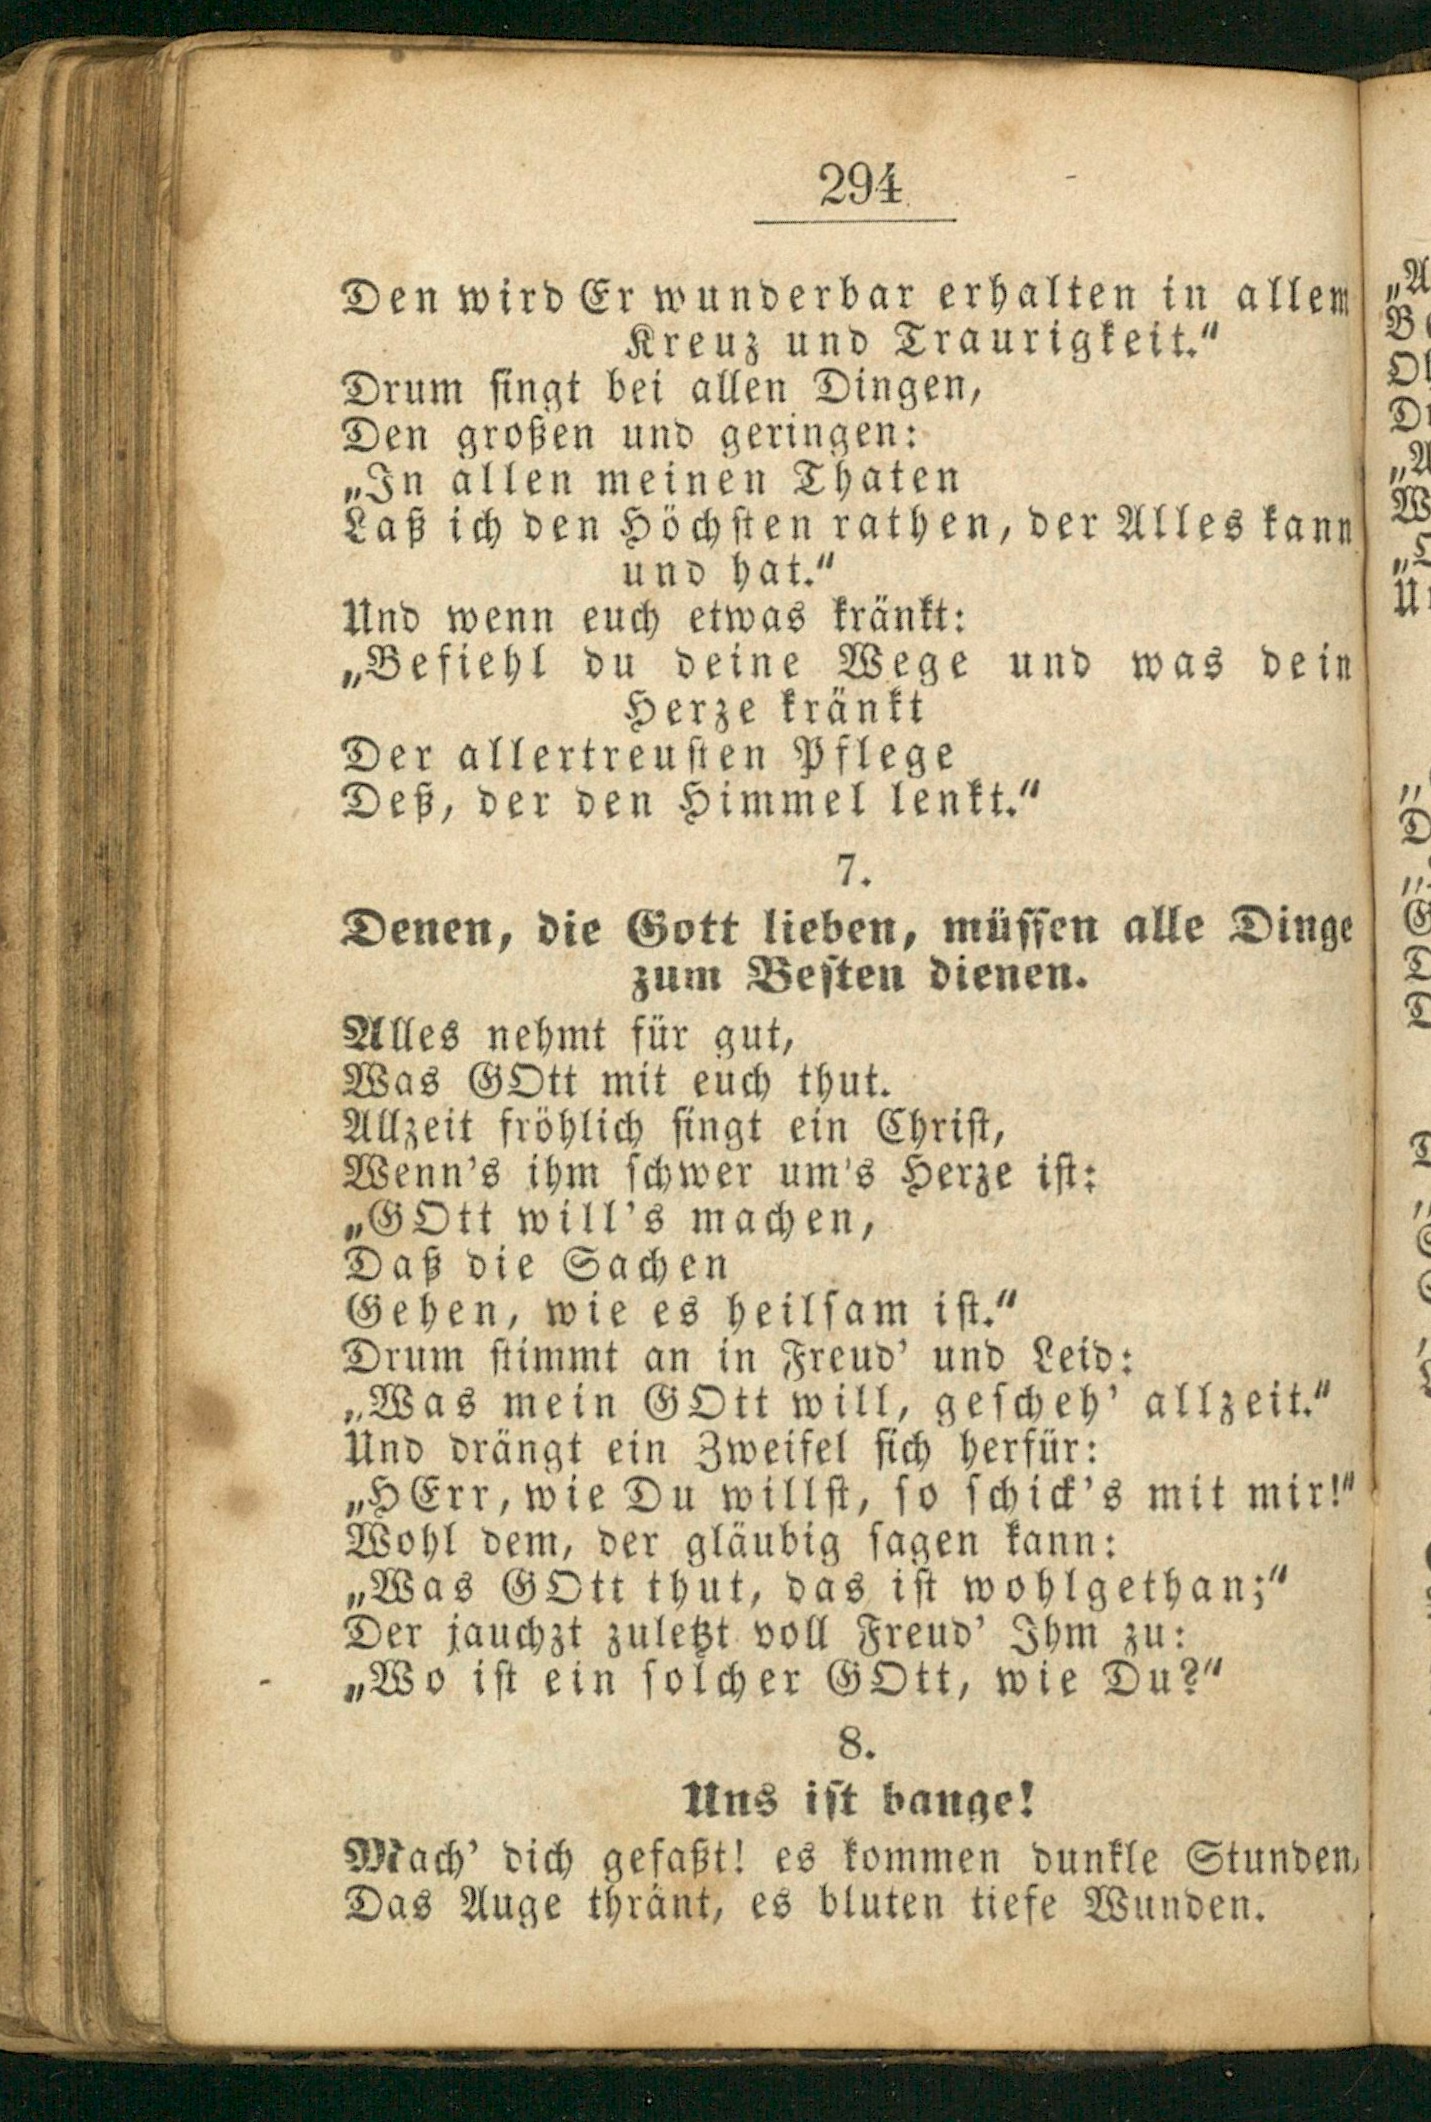 294
Den wird Er wunderbar erhalten in allem
Kreuz und Traurigkeit.“
Drum singt bei allen Dingen,
Den großen und geringen:
„In allen meinen Thaten
Laß ich den Höchsten rathen, der Alles kann
und hat.“
Und wenn euch etwas kränkt:
„Befiehl du deine Wege und was dein
Herze kränkt
Der allertreusten Pflege
Deß, der den Himmel lenkt.“
7.
Denen, die Gott lieben, müssen alle Dinge
zum Besten dienen.
Alles nehmt für gut,
Was GOtt mit euch thut.
Allzeit fröhlich singt ein Christ,
Wenn's ihm schwer um's Herze ist:
„GOtt will's machen,
Daß die Sachen
Gehen, wie es heilsam ist.“
Drum stimmt an in Freud' und Leid:
„Was mein GOtt will, gescheh' allzeit.“
Und drängt ein Zweifel sich herfür:
„HErr, wie Du willst, so schick's mit mir!“
Wohl dem, der gläubig sagen kann:
„Was GOtt thut, das ist wohlgethan;“
Der jauchzt zuletzt voll Freud' Ihm zu:
„Wo ist ein solcher GOtt, wie Du?“
8.
Uns ist bange!
Mach' dich gefaßt! es kommen dunkle Stunden,
Das Auge thränt, es bluten tiefe Wunden.